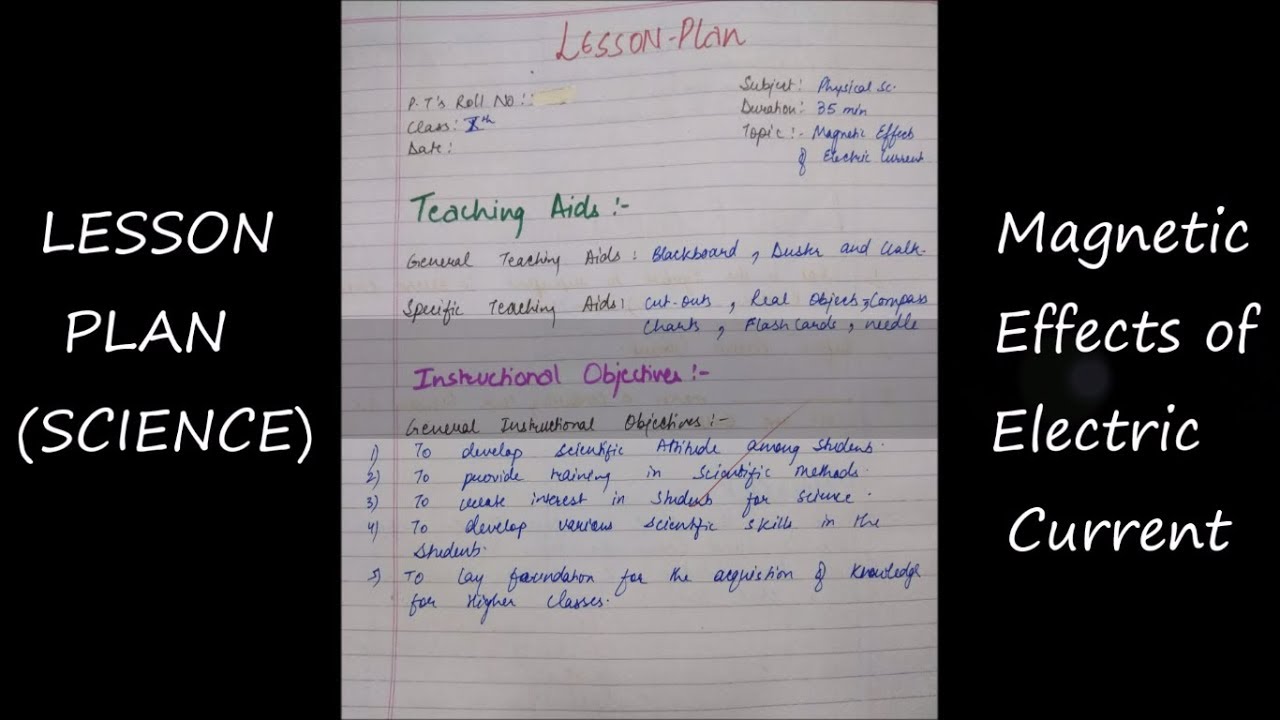 LESSON
PLAN
(SCIENCE)
Lesson-Plan
P.T's Roll No::
Class: Xth
Date:
Subject: Physical Sc.
Duration: 35 min
Topic:- Magnetic Effects
of Electric Current
Teaching Aids:-
General Teaching Aids: Blackboard, Duster and Chalk.
Specific Teaching Aids: Cut-outs, Real Objects, Compass
Charts, Flash Cards, needle
Instructional Objectives:-
General Instructional Objectives:-
1) To develop scientific Attitude among students.
2) To provide training in scientific methods.
3) To create interest in students for science.
4) To develop various scientific skills in the
students.
5) To lay foundation for the acquistion of knowledge
for Higher Classes.
Magnetic
Effects of
Electric
Current